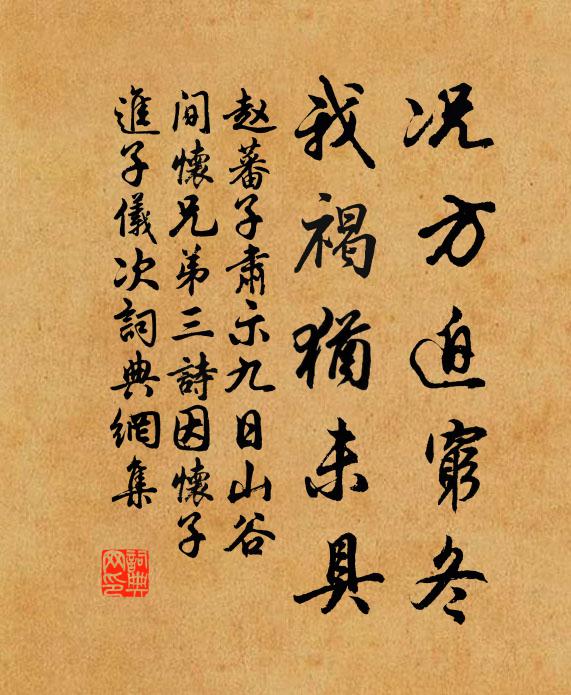 况方迫窮冬
我褐猶未具
赵蕃子肅示九日山谷
间懷兄弟三詩因懷子
進子儀次詞典網集
詞典网印